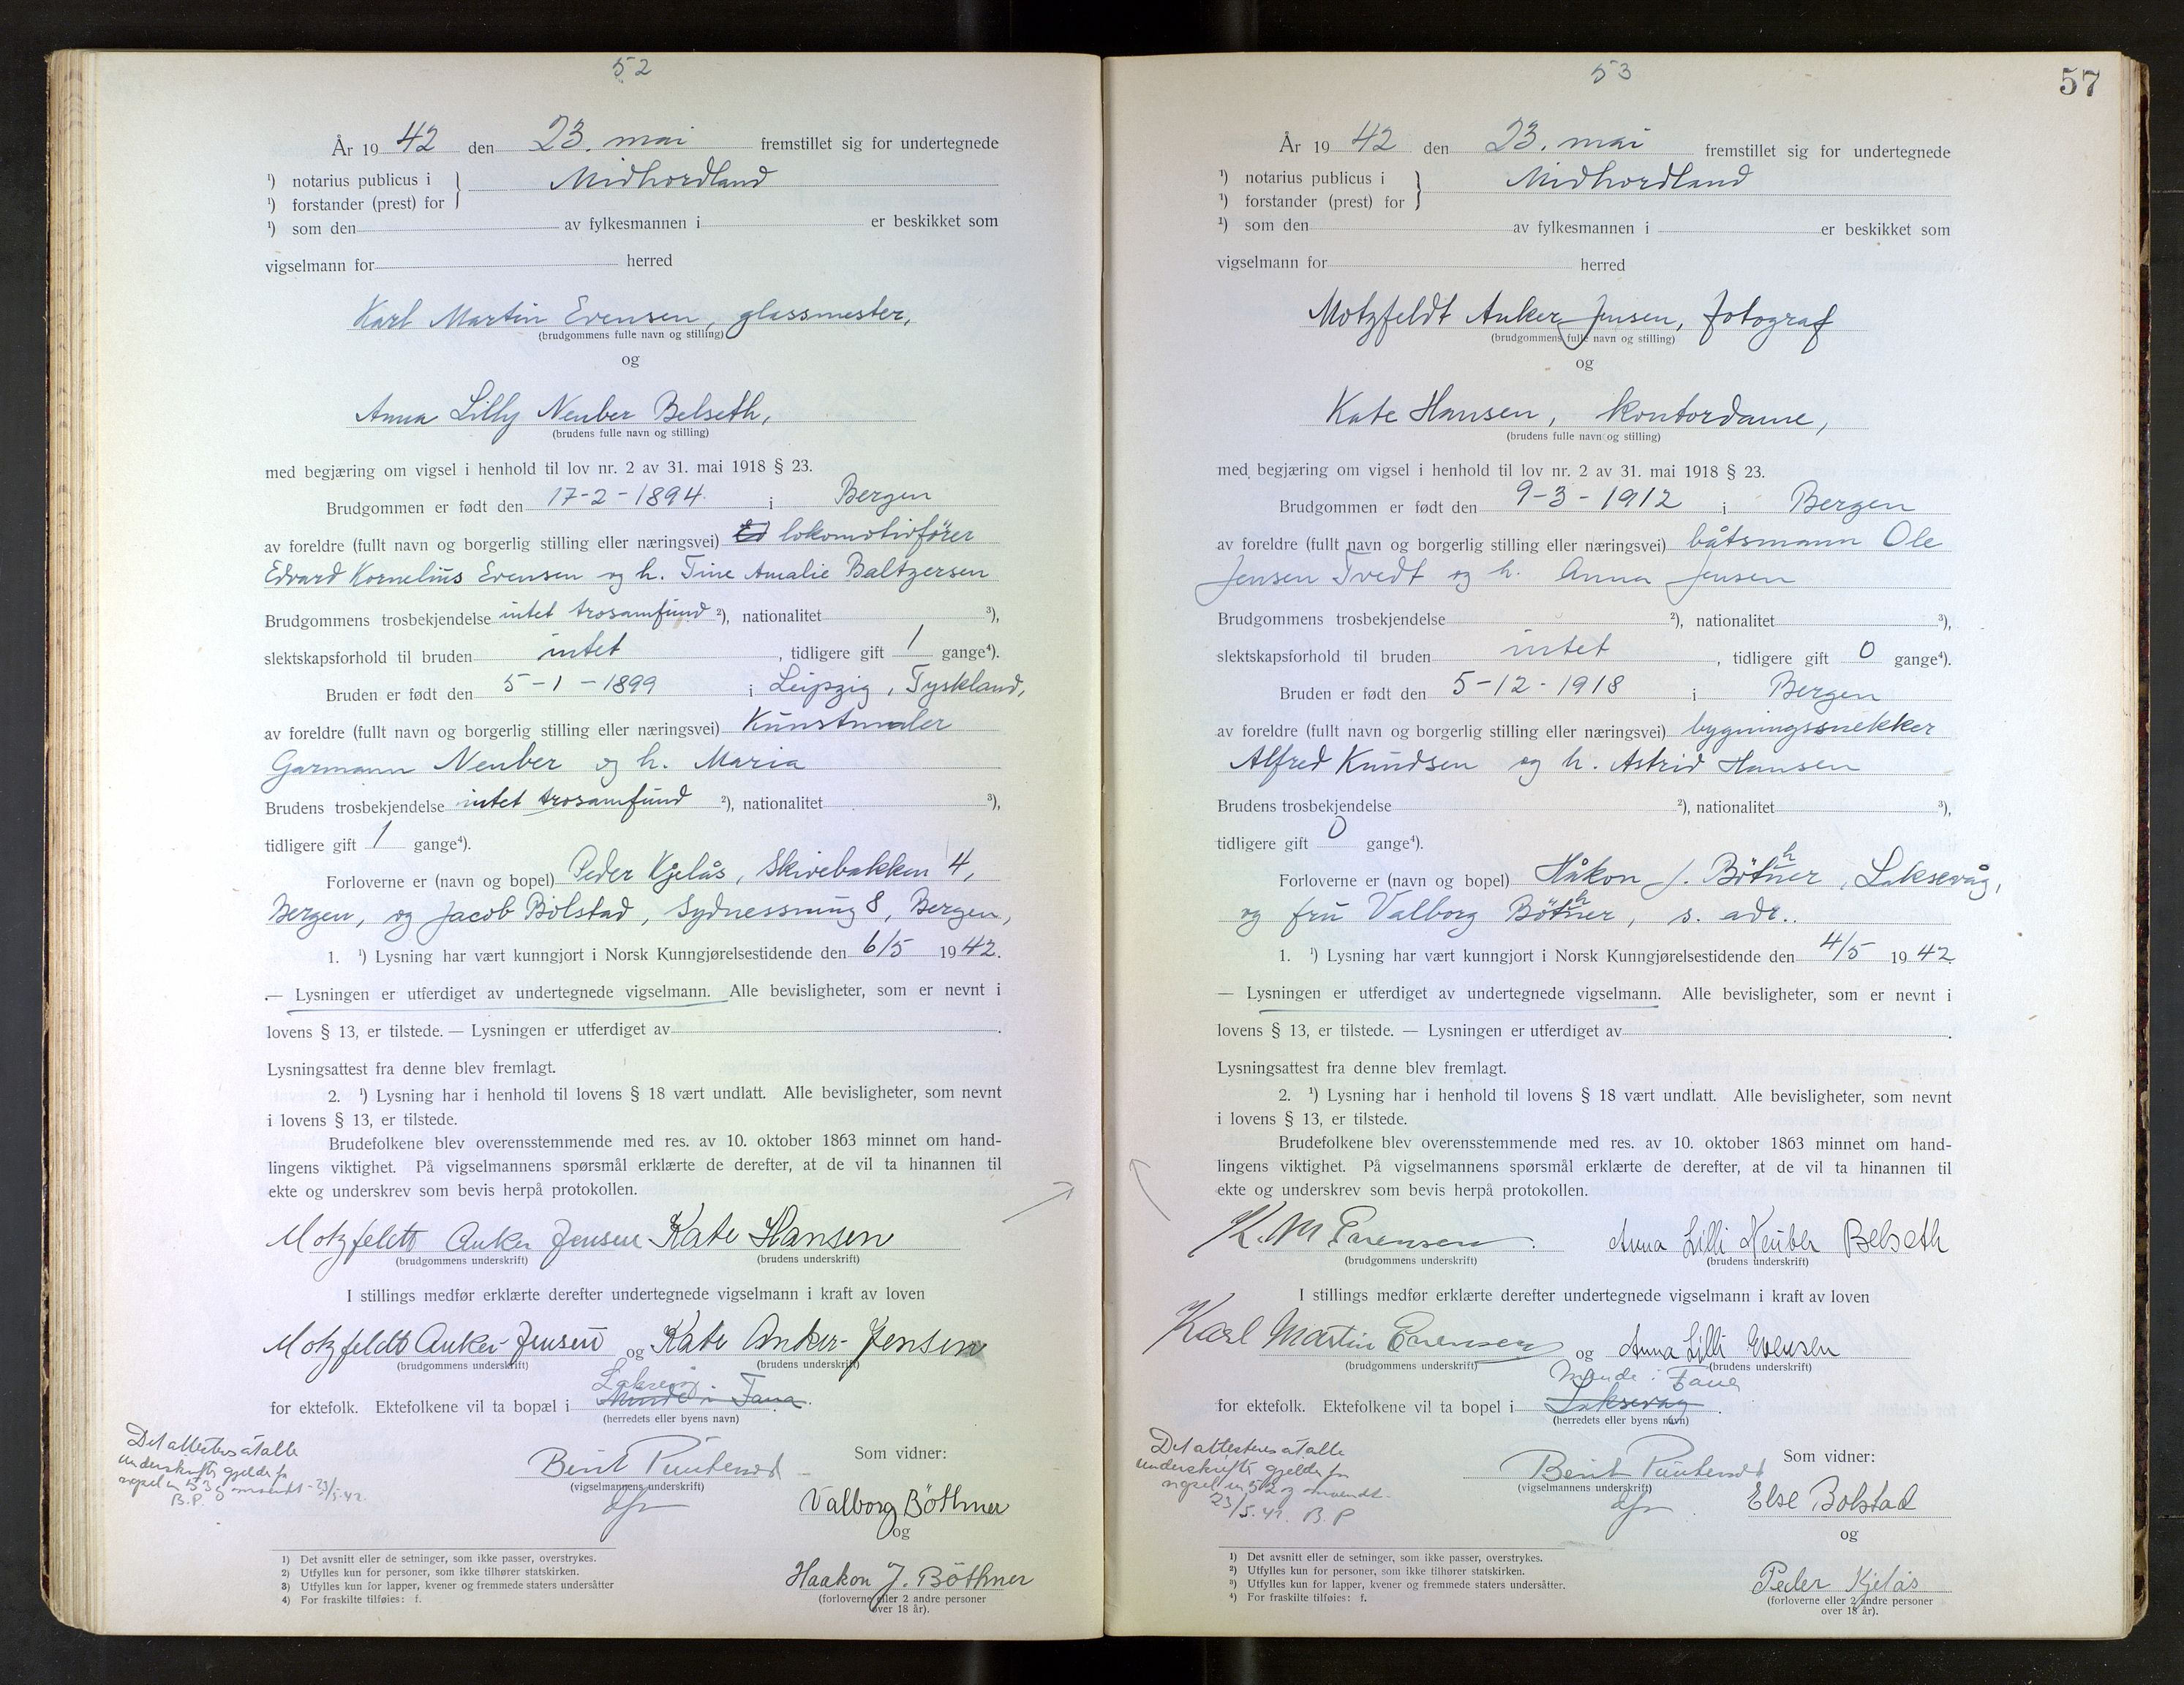 52
År 1942 den 23. mai fremstillet sig for undertegnede
¹) notarius publicus i } Midhordland
¹) forstander (prest) for
¹) som den av fylkesmannen i er beskikket som
vigselmann for herred
Karl Martin Evensen, glassmester,
(brudgommens fulle navn og stilling)
og
Anna Lilly Neuber Belseth,
(brudens fulle navn og stilling)
med begjæring om vigsel i henhold til lov nr. 2 av 31. mai 1918 § 23.
Brudgommen er født den 17-2-1894 i Bergen
av foreldre (fullt navn og borgerlig stilling eller næringsvei) Ed lokomotivfører
Edvard Kornelius Evensen og h. Tine Amalie Baltzersen
Brudgommens trosbekjendelse intet trosamfund ²), nationalitet ³),
slektskapsforhold til bruden intet, tidligere gift 1 gange⁴).
Bruden er født den 5-1-1899 i Leipzig, Tyskland,
av foreldre (fullt navn og borgerlig stilling eller næringsvei) Kunstmaler
Garmann Neuber og h. Maria
Brudens trosbekjendelse intet trosamfund ²), nationalitet ³),
tidligere gift 1 gange⁴).
Forloverne er (navn og bopel) Peder Kjelås, Skivebakken 4,
Bergen, og Jacob Bolstad, Sydnessmug 8, Bergen,
1. ¹) Lysning har vært kunngjort i Norsk Kunngjørelsestidende den 6/5 1942.
— Lysningen er utferdiget av undertegnede vigselmann. Alle bevisligheter, som er nevnt i
lovens § 13, er tilstede. — Lysningen er utferdiget av .
Lysningsattest fra denne blev fremlagt.
2. ¹) Lysning har i henhold til lovens § 18 vært undlatt. Alle bevisligheter, som nevnt
i lovens § 13, er tilstede.
Brudefolkene blev overensstemmende med res. av 10. oktober 1863 minnet om hand-
lingens viktighet. På vigselmannens spørsmål erklærte de derefter, at de vil ta hinannen til
ekte og underskrev som bevis herpå protokollen.
Motzfeldt Anker Jensen Kate Hansen
(brudgommens underskrift) (brudens underskrift)
I stillings medfør erklærte derefter undertegnede vigselmann i kraft av loven
Motzfeldt Anker-Jensen og Kate Anker-Jensen
(brudgommens underskrift) (brudens underskrift)
Laksevåg
for ektefolk. Ektefolkene vil ta bopæl i Minde i Fana.
(herredets eller byens navn)
Det attesteres at alle
underskrifter gjelder for
vigsel nr 53 og omvendt - 23/5.42.
B.P.
Som vidner:
Berit
(vigselmannens underskrift)
Valborg Böthner
og
Haakon J. Böthner
(forloverne eller 2 andre personer
over 18 år).
1) Det avsnitt eller de setninger, som ikke passer, overstrykes.
2) Utfylles kun for personer, som ikke tilhører statskirken.
3) Utfylles kun for lapper, kvener og fremmede staters undersåtter
4) For fraskilte tilføies: f.
53
57
År 1942 den 23. mai fremstillet sig for undertegnede
¹) notarius publicus i } Midhordland
¹) forstander (prest) for
¹) som den av fylkesmannen i er beskikket som
vigselmann for herred
Motzfeldt Anker Jensen, fotograf
(brudgommens fulle navn og stilling)
og
Kate Hansen, kontordame,
(brudens fulle navn og stilling)
med begjæring om vigsel i henhold til lov nr. 2 av 31. mai 1918 § 23.
Brudgommen er født den 9-3-1912 i Bergen
av foreldre (fullt navn og borgerlig stilling eller næringsvei) båtsmann Ole
Jensen Tvedt og h. Anna Jensen
Brudgommens trosbekjendelse ²), nationalitet ³),
slektskapsforhold til bruden intet, tidligere gift 0 gange⁴).
Bruden er født den 5-12-1918 i Bergen
av foreldre (fullt navn og borgerlig stilling eller næringsvei) bygningssnekker
Alfred Knudsen og h. Astrid Hansen
Brudens trosbekjendelse ²), nationalitet ³),
tidligere gift 0 gange⁴).
Forloverne er (navn og bopel) Håkon J. Böthner, Laksevåg,
og fru Valborg Böthner, s. adr..
1. ¹) Lysning har vært kunngjort i Norsk Kunngjørelsestidende den 4/5 1942
— Lysningen er utferdiget av undertegnede vigselmann. Alle bevisligheter, som er nevnt i
lovens § 13, er tilstede. — Lysningen er utferdiget av .
Lysningsattest fra denne blev fremlagt.
2. ¹) Lysning har i henhold til lovens § 18 vært undlatt. Alle bevisligheter, som nevnt
i lovens § 13, er tilstede.
Brudefolkene blev overensstemmende med res. av 10. oktober 1863 minnet om hand-
lingens viktighet. På vigselmannens spørsmål erklærte de derefter, at de vil ta hinannen til
ekte og underskrev som bevis herpå protokollen.
K. M. Evensen. Anna Lilli Neuber Belseth
(brudgommens underskrift) (brudens underskrift)
I stillings medfør erklærte derefter undertegnede vigselmann i kraft av loven
Karl Martin Evensen og Anna Lilli Evensen
(brudgommens underskrift) (brudens underskrift)
Minde i Fana
for ektefolk. Ektefolkene vil ta bopel i Laksevåg.
(herredets eller byens navn)
Det attesteres at alle
underskrifter gjelder for
vigsel nr 52 og omvendt.
23/5.42. B.P
Som vidner:
Berit
(vigselmannens underskrift)
Else Bolstad
og
Peder Kjelås
(forloverne eller 2 andre personer
over 18 år).
1) Det avsnitt eller de setninger, som ikke passer, overstrykes.
2) Utfylles kun for personer, som ikke tilhører statskirken.
3) Utfylles kun for lapper, kvener og fremmede staters undersåtter.
4) For fraskilte tilføies: f.